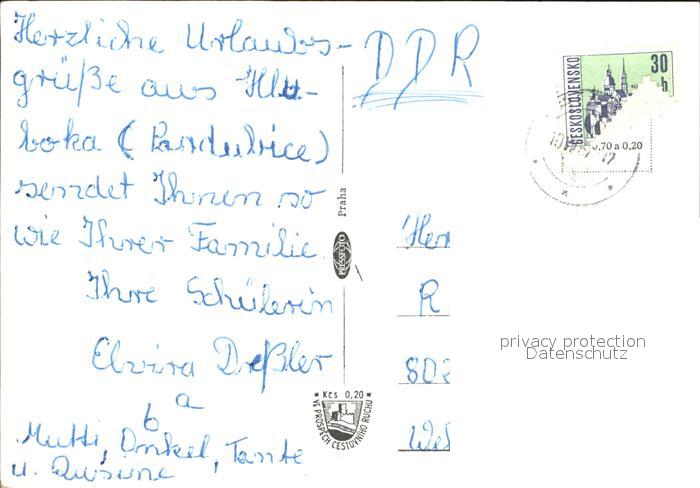 Herzliche Urlaubs-
grüße aus Hlu-
boka (Pardubice)
sendet Ihnen so
wie Ihrer Familie
Ihre Schülerin
Elvira Deßler
a
b
Mutti, Onkel, Tante
u.
DDR
ČESKOSLOVENSKO
30
h
0,70 a 0,20
Praha
PRESSFOTO
Her
R
802
privacy protection
Datenschutz
Kčs 0,20
VE PROSPĚCH CESTOVNÍHO RUCHU